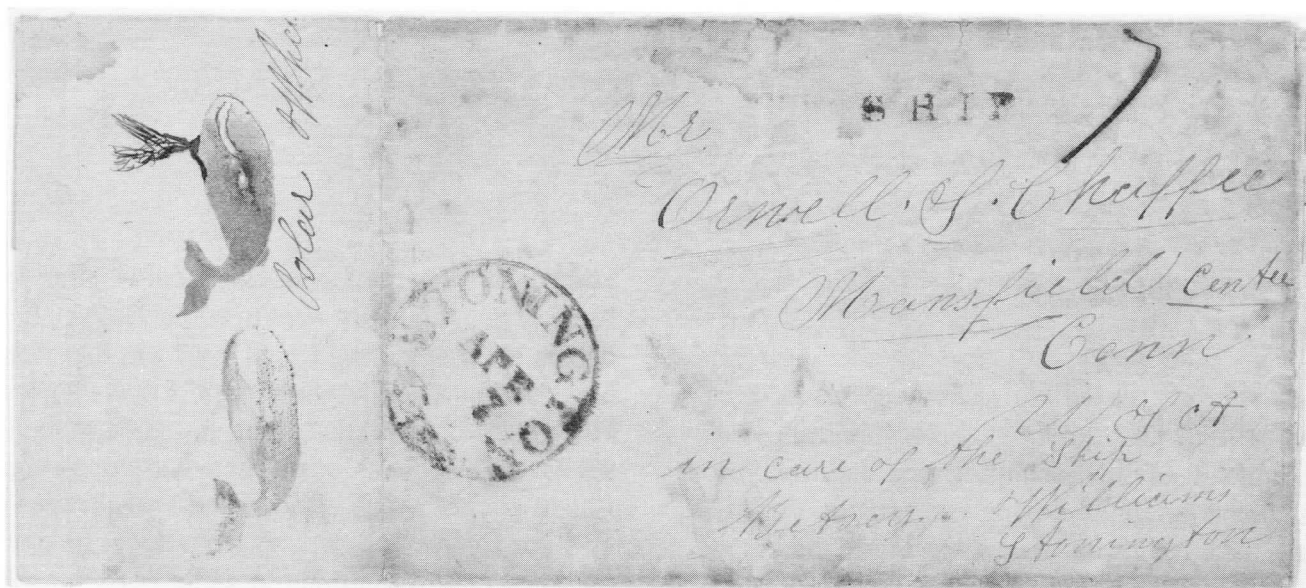 Polar
SHIP
7
Mr
Orwell. S. Chaffee
Mansfield Center
Conn
U S A
in care of the Ship
Betsey. Williams
Stonington
STONINGTON
APR
7